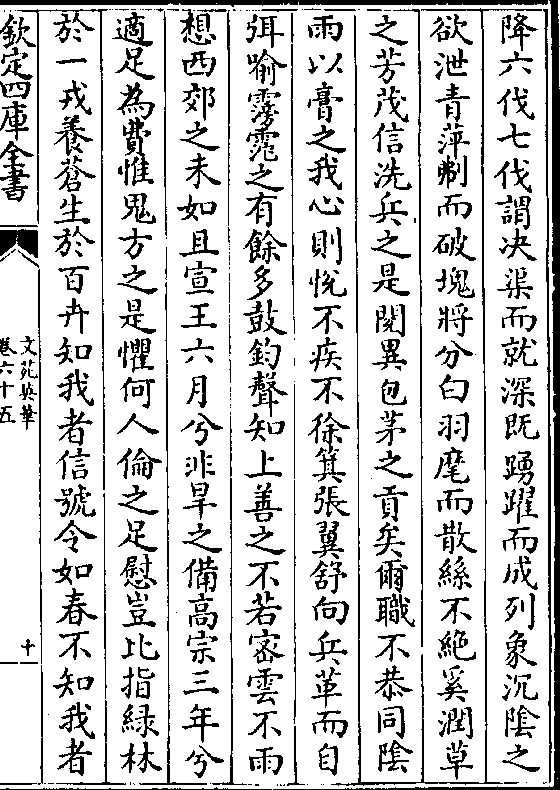 降六伐七伐謂决渠而就深既踴躍而成列象沉陰之
欲泄青萍劃而破塊將分白羽麾而散絲不絶奚潤草
之芳茂信洗兵之是閲異包茅之貢矣爾職不恭同陰
雨以膏之我心則悅不疾不徐箕張翼舒向兵革而自
弭喻霧霈之有餘多鼓鈞聲知上善之不若密雲不雨
想西郊之未如且宣王六月兮非旱之備高宗三年兮
適足為費惟鬼方之是懼何人倫之足慰豈比指緑林
於一戎養蒼生於百卉知我者信號令如春不知我者
欽定四庫全書
文苑英華
卷六十五
十